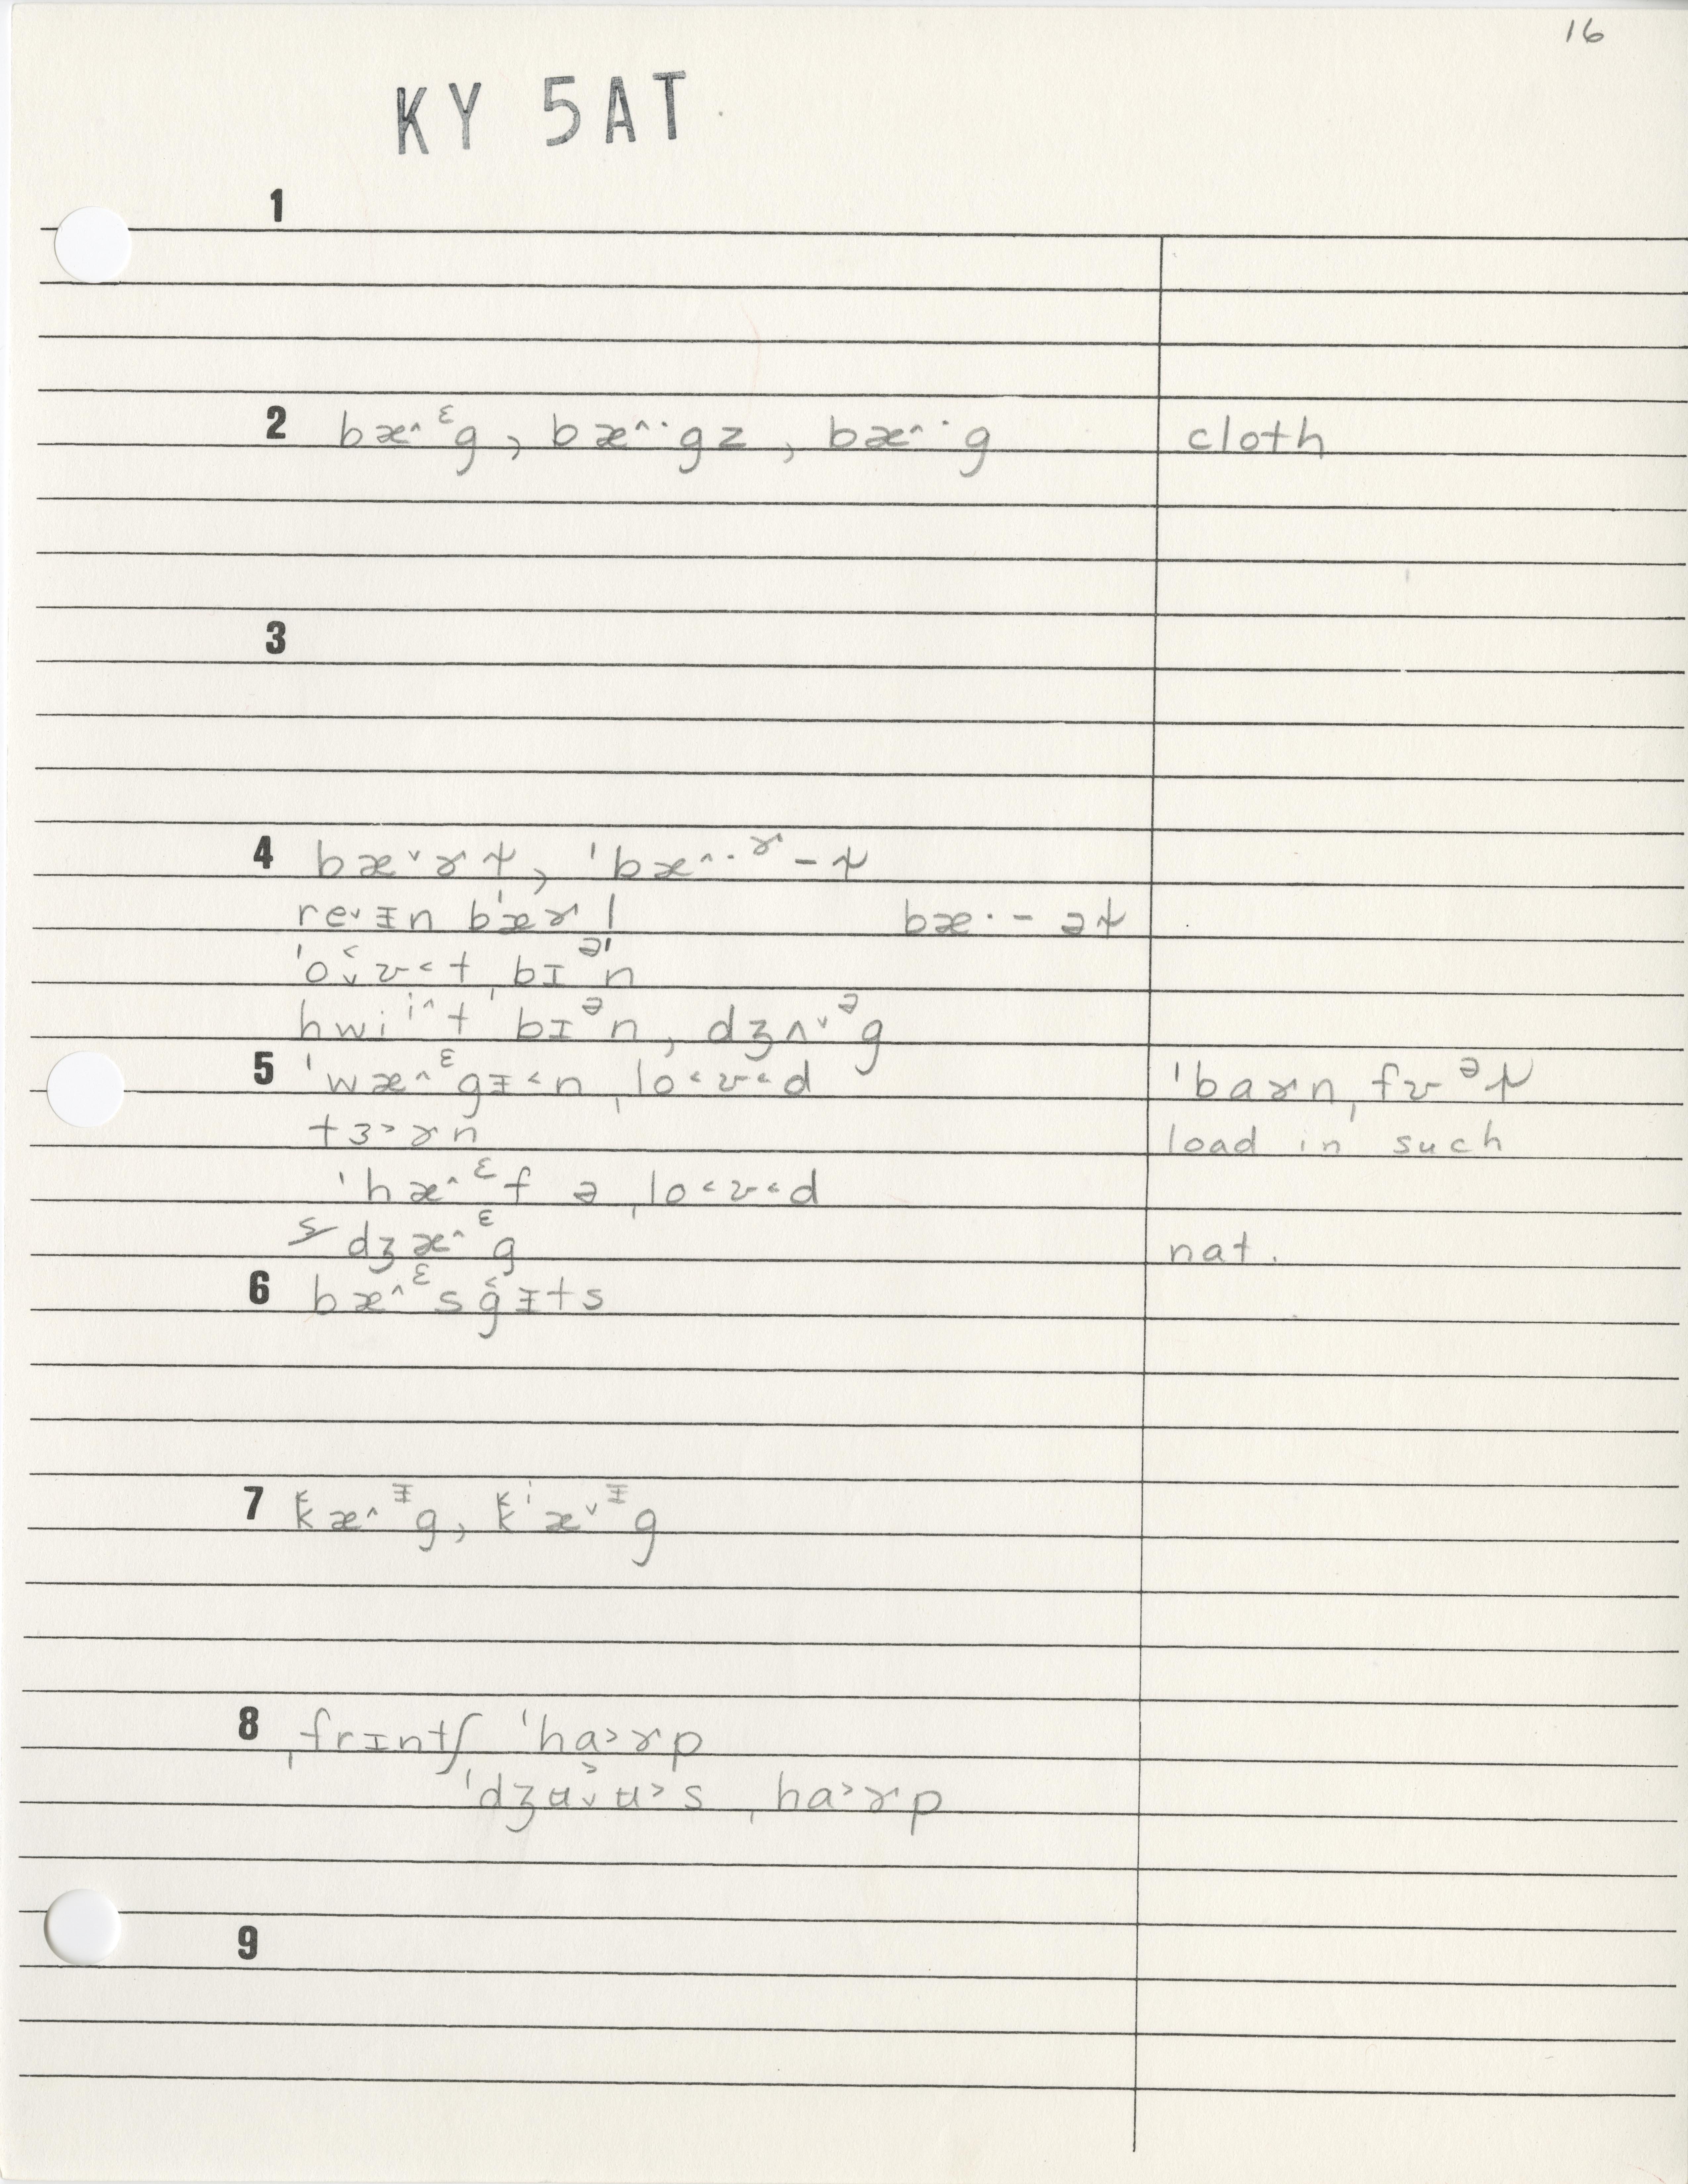 16
KY 5AT
1
2 bæ˄ᵋg, bæ˄·gz, bæ˄·g cloth
3
4 bæ˅ɤɫ, ˈbæ˄·ˠ-ɫ
re˅ᵻn bˈæɤl bæ·-əɫ
ˈo˅˂ʊ˂t ˌbɪᵊˈn
hwiⁱ˄t ˌbɪᵊn, dʒʌ˅ᵊg
5 ˈwæ˄ᵋgᵻ˂n ˌlo˂ʊ˂d ˈbaɤn ˌfʊᵊɫ
tɜ˃ɤn load in such
ˈhæ˄ᵋf ə ˌlo˂ʊ˂d
dʒæ˄ᵋg nat.
6 bæ˄ᵋsg̬ᵻts
7 kæ˄ᵻg, kⁱæ˅ᵻg
8 ˌfrɪntʃ ˈha˃ɤp
ˈdʒʉ˅˃ʉ˃s ˌha˃ɤp
9